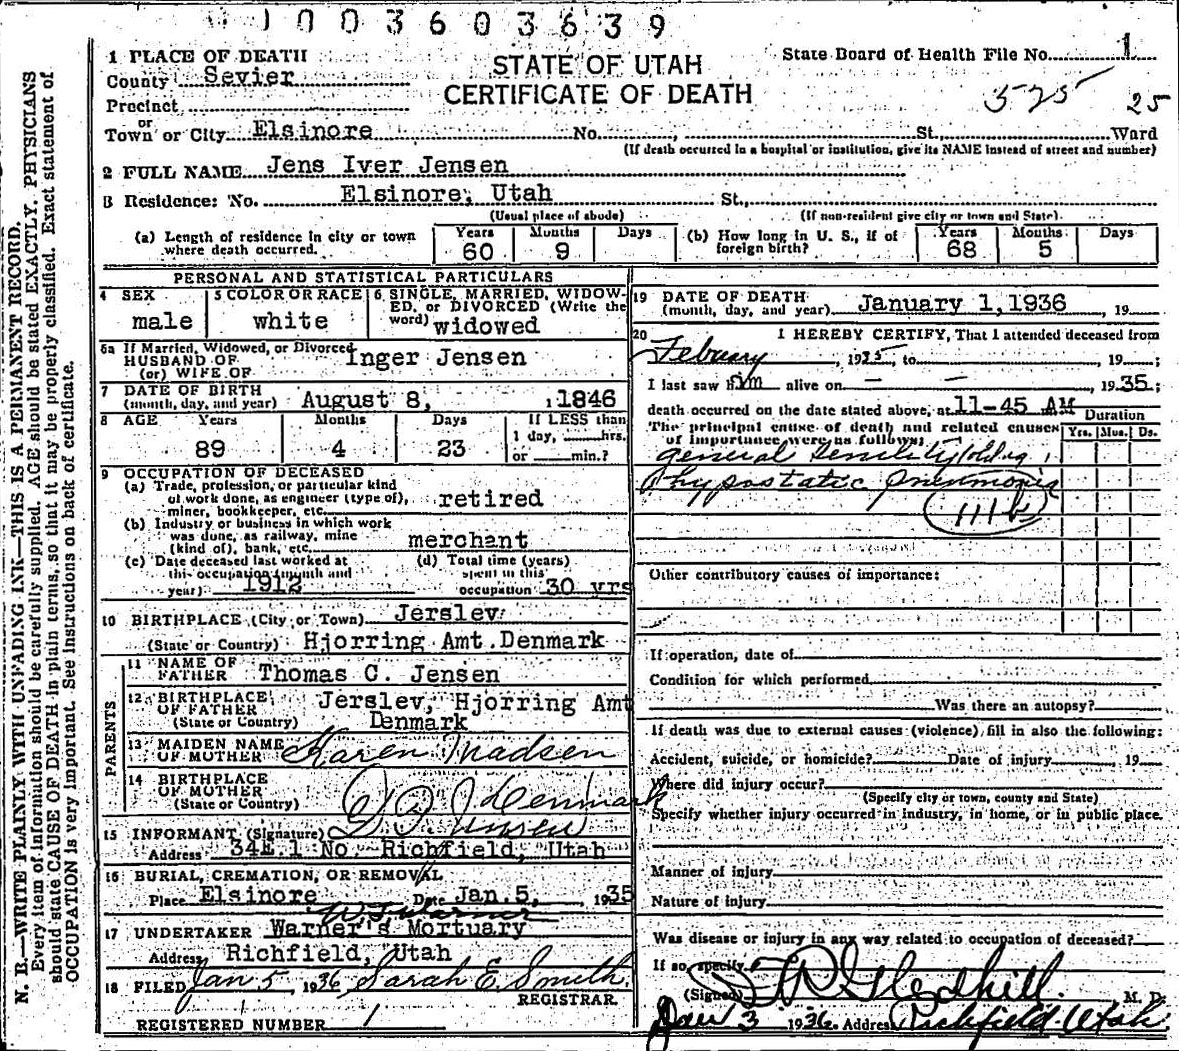 1003603639
N. B.—WRITE PLAINLY WITH UNFADING INK—THIS IS A PERMANENT RECORD.
Every item of information should be carefully supplied. AGE should be stated EXACTLY. PHYSICIANS
should state CAUSE OF DEATH in plain terms, so that it may be properly classified. Exact statement of
OCCUPATION is very important. See instructions on back of certificate.
STATE OF UTAH
CERTIFICATE OF DEATH
State Board of Health File No. 1
575 25
1 PLACE OF DEATH
County Sevier
Precinct
or
Town or City Elsinore No. , St. Ward
(If death occurred in a hospital or institution, give its NAME instead of street and number)
2 FULL NAME Jens Iver Jensen
3 Residence: No. Elsinore, Utah St.,
(Usual place of abode) (If non-resident give city or town and State)
(a) Length of residence in city or town where death occurred. Years 60 Months 9 Days
(b) How long in U. S., if of foreign birth? Years 68 Months 5 Days
PERSONAL AND STATISTICAL PARTICULARS
4 SEX male
5 COLOR OR RACE white
6 SINGLE, MARRIED, WIDOW-
ED, or DIVORCED (Write the
word) widowed
6a If Married, Widowed, or Divorced
HUSBAND OF Inger Jensen
(or) WIFE OF
7 DATE OF BIRTH
(month, day, and year) August 8, , 1846
8 AGE Years 89 Months 4 Days 23
If LESS than
1 day, hrs.
or min.?
9 OCCUPATION OF DECEASED
(a) Trade, profession, or particular kind
of work done, as engineer (type of),
miner, bookkeeper, etc. retired
(b) Industry or business in which work
was done, as railway, mine
(kind of), bank, etc. merchant
(c) Date deceased last worked at
this occupation (month and
year) 1912
(d) Total time (years)
spent in this
occupation 30 yrs
10 BIRTHPLACE (City or Town) Jerslev
(State or Country) Hjorring Amt. Denmark
PARENTS
11 NAME OF
FATHER Thomas C. Jensen
12 BIRTHPLACE
OF FATHER Jerslev, Hjorring Amt
(State or Country) Denmark
13 MAIDEN NAME
OF MOTHER Karen Madsen
14 BIRTHPLACE
OF MOTHER
(State or Country) Denmark
15 INFORMANT (Signature)
Address 34E 1 No. Richfield, Utah
16 BURIAL, CREMATION, OR REMOVAL
Place Elsinore Date Jan. 5, , 1935
W. J. Warner
17 UNDERTAKER Warner's Mortuary
Address Richfield, Utah
18 FILED Jan 5 , 1936 Sarah E. Smith
REGISTRAR.
REGISTERED NUMBER 1
19 DATE OF DEATH
(month, day, and year) January 1, 1936 , 19
20 I HEREBY CERTIFY, That I attended deceased from
Febuary , 1935, to , 19 ;
I last saw him alive on — — , 1935;
death occurred on the date stated above, at 11-45 AM
The principal cause of death and related causes
of importance were as follows:
Duration
Yrs. Mos. Ds.
general senility (old ag
hypostatic pneumonia
111b
Other contributory causes of importance:
If operation, date of
Condition for which performed
Was there an autopsy?
If death was due to external causes (violence), fill in also the following:
Accident, suicide, or homicide? Date of injury , 19
Where did injury occur?
(Specify city or town, county and State)
Specify whether injury occurred in industry, in home, or in public place.
Manner of injury
Nature of injury
Was disease or injury in any way related to occupation of deceased?
If so, specify
(Signed) Gledhill. M. D.
Jan 3 1936. Address Richfield Utah